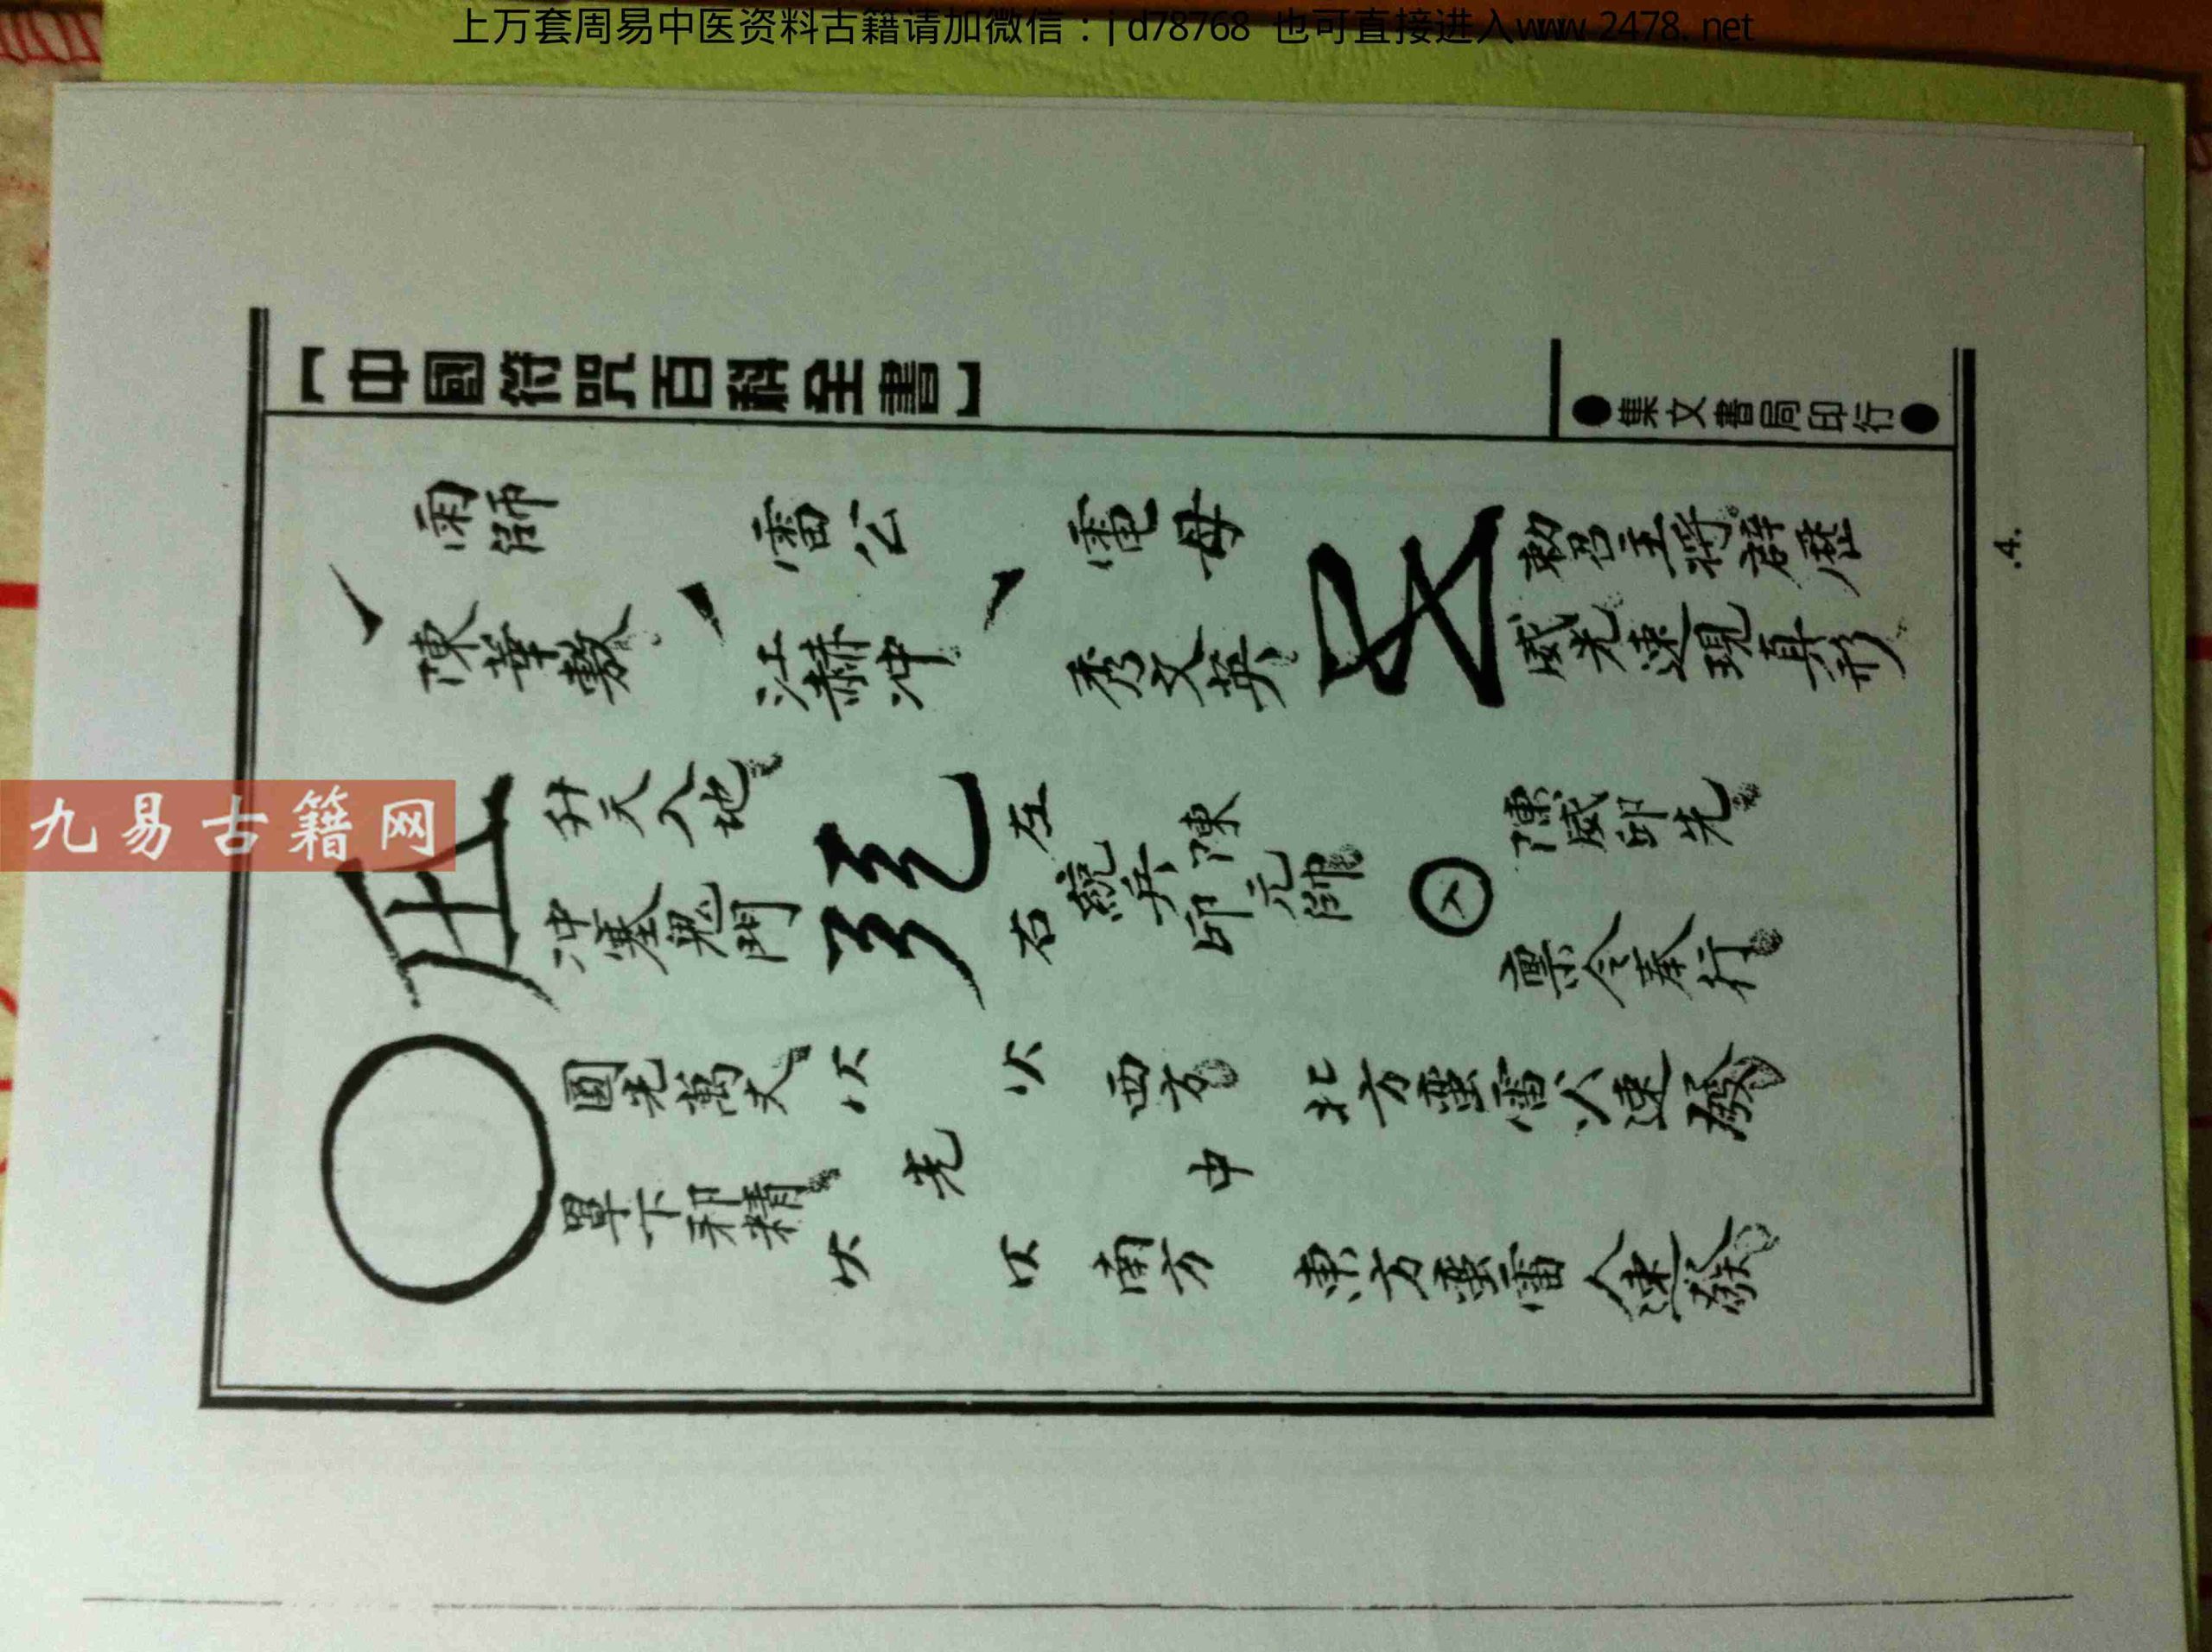 上万套周易中医资料古籍请加微信：jd78768 也可直接进入www.2478.net
九易古籍网
【中國符咒百科全書】
●集文書局印行●
雨師
陳華敷
雷公
江赫冲
電母
秀文英
敕召主將辟歷
威光速現真形
升天入地
冲塞鬼門
左
右
統兵
陳元帥
印
陳威卬先
禀令奉行
圓光萬丈
罩下邪精
光
西方
中
南方
北方蛮雷火速發
東方蛮雷火速發
.4.